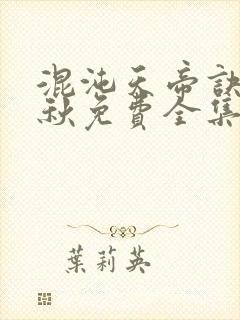 混沌天帝訣
秋免費全集
葉莉英